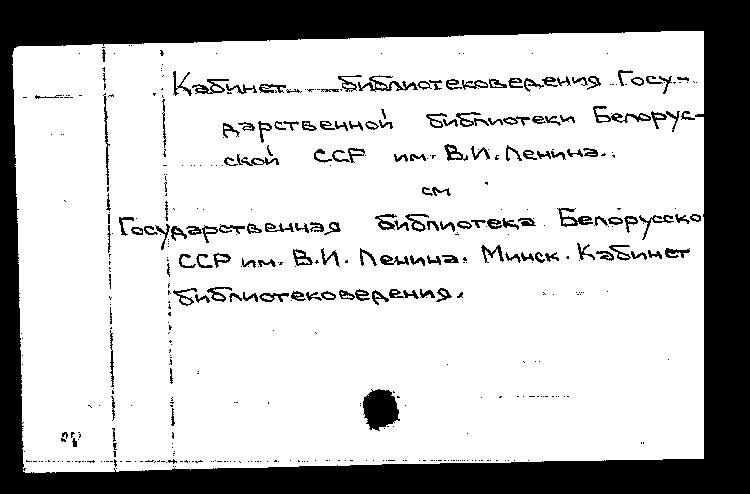 Кабинет библиотековедения Госу-
дарственной библиотеки Белорус-
ской ССР им. В.И. Ленина.
см
Государственная библиотека Белорусско
ССР им. В.И. Ленина. Минск. Кабинет
библиотековедения.